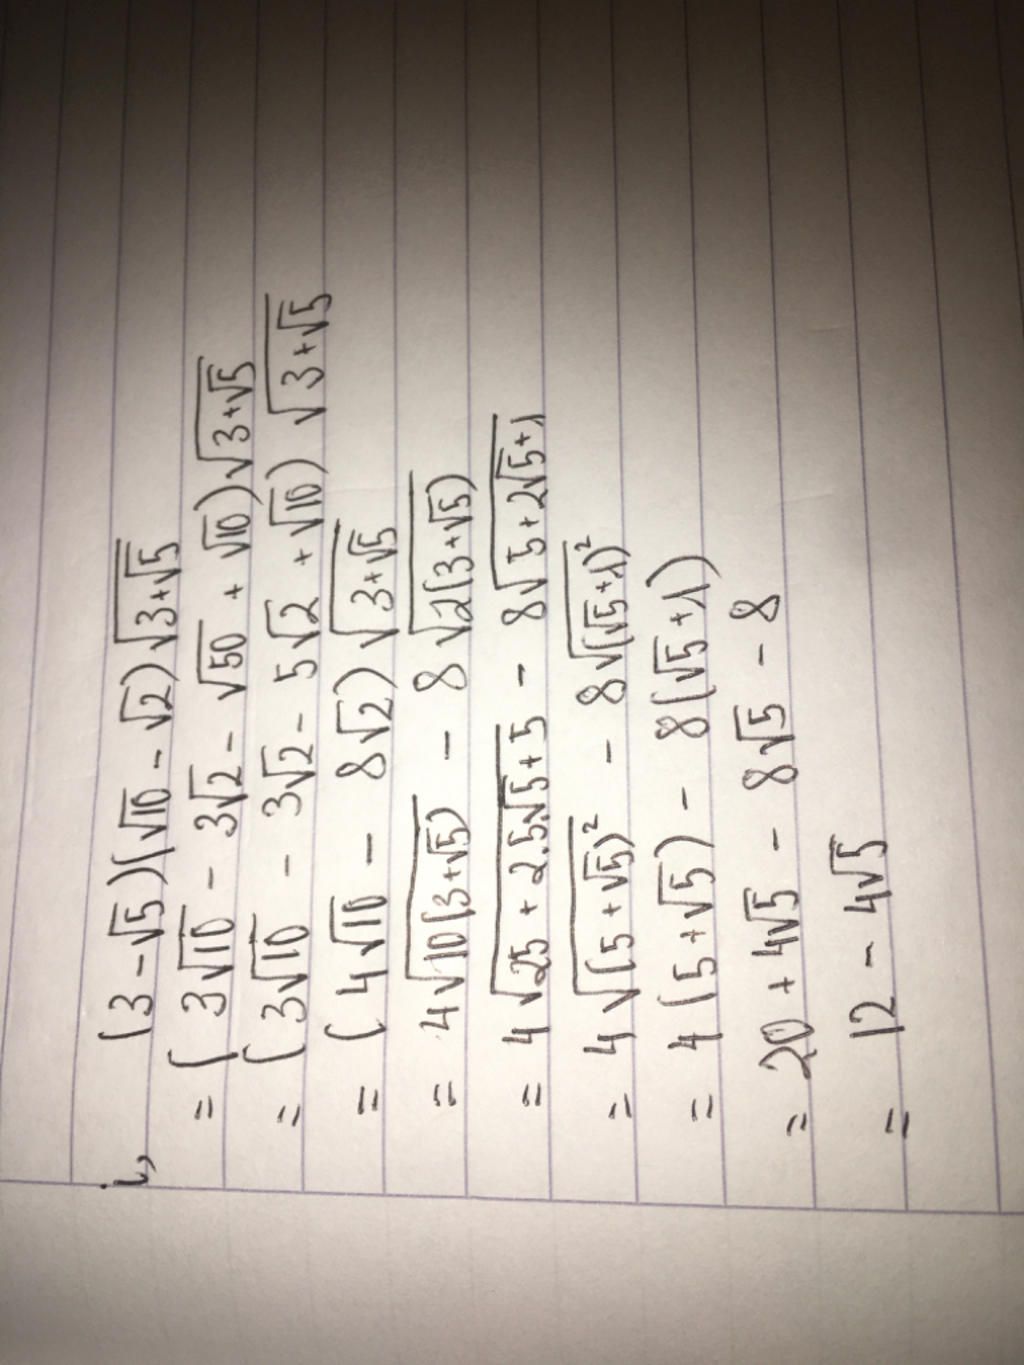 i, (3 - √5)(√10 - √2) √(3+√5)
= (3√10 - 3√2 - √50 + √10) √(3+√5)
= (3√10 - 3√2 - 5√2 + √10) √(3+√5)
= (4√10 - 8√2) √(3+√5)
= 4√(10(3+√5)) - 8√(2(3+√5))
= 4√(25 + 2.5.√5 + 5) - 8√(5+2√5+1)
= 4√((5+√5)²) - 8√((√5+1)²)
= 4(5+√5) - 8(√5+1)
= 20 + 4√5 - 8√5 - 8
= 12 - 4√5